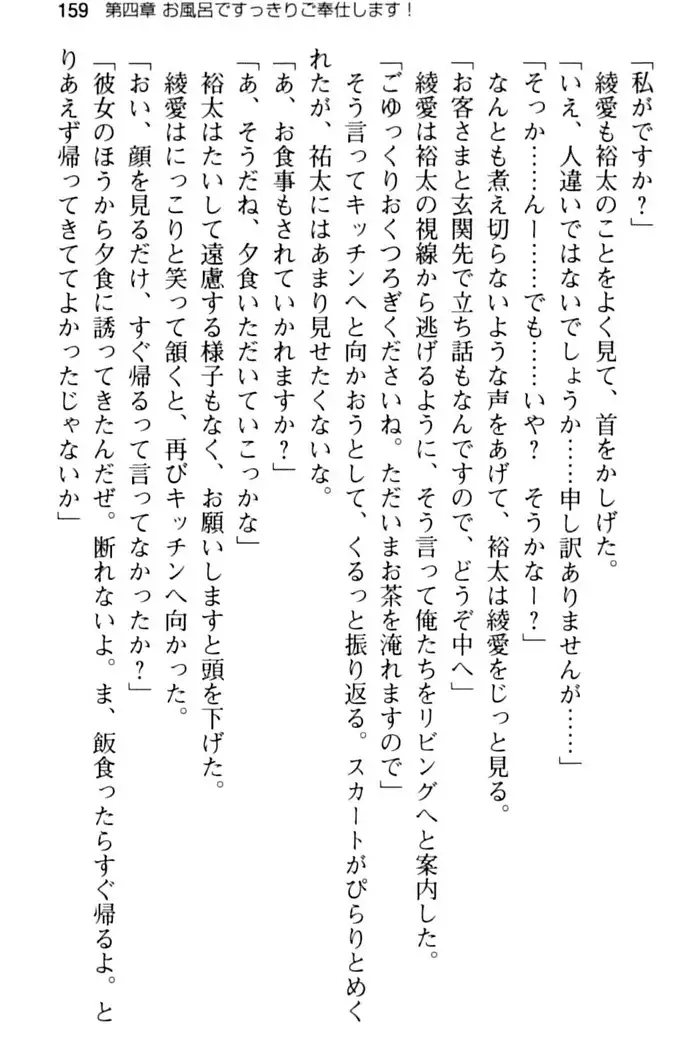 159 第四章 お風呂ですっきりご奉仕します！
「私がですか？」
綾愛も裕太のことをよく見て、首をかしげた。
「いえ、人違いではないでしょうか……申し訳ありませんが……」
「そっか……んー……でも……いや？　そうかなー？」
なんとも煮え切らないような声をあげて、裕太は綾愛をじっと見る。
「お客さまと玄関先で立ち話もなんですので、どうぞ中へ」
綾愛は裕太の視線から逃げるように、そう言って俺たちをリビングへと案内した。
「ごゆっくりおくつろぎくださいね。ただいまお茶を淹れますので」
そう言ってキッチンへと向かおうとして、くるっと振り返る。スカートがぴらりとめく
れたが、祐太にはあまり見せたくないな。
「あ、お食事もされていかれますか？」
「あ、そうだね、夕食いただいていこっかな」
裕太はたいして遠慮する様子もなく、お願いしますと頭を下げた。
綾愛はにっこりと笑って頷くと、再びキッチンへ向かった。
「おい、顔を見るだけ、すぐ帰るって言ってなかったか？」
「彼女のほうから夕食に誘ってきたんだぜ。断れないよ。ま、飯食ったらすぐ帰るよ。と
りあえず帰ってきててよかったじゃないか」